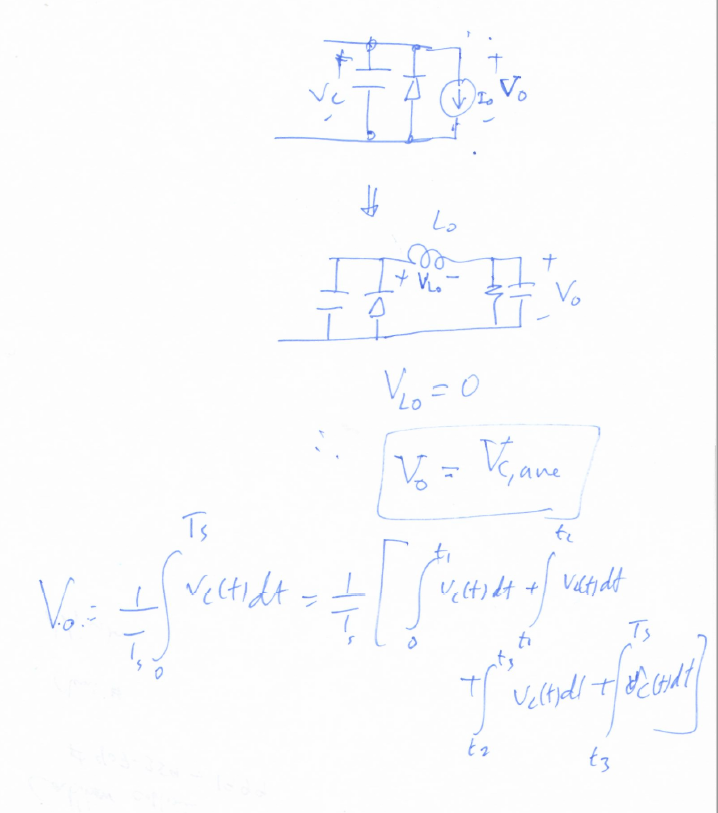 + +
V_C I_o V_o
- -
⇓
L_o
+ V_Lo - + V_o -
V_Lo = 0
∴ V_o = V_C,ave
V_o = 1/T_s ∫_0^Ts v_c(t)dt = 1/T_s [ ∫_0^t1 v_c(t)dt + ∫_t1^t2 v_c(t)dt
+ ∫_t2^t3 v_c(t)dt + ∫_t3^Ts v_c(t)dt ]